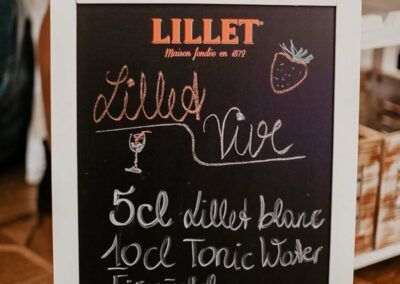 LILLET
Maison fondée en 1872
Lillet
Vive
5cl Lillet blanc
10cl Tonic Water